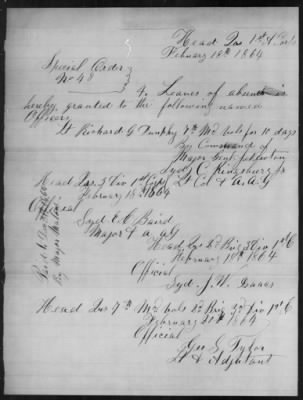 Head Qrs 1st A Corps
February 18th 1864
Special Order
No 48
4. Leaves of absence is
hereby granted to the following named
Officers
Lt Richard G Dunphy 7th Md vols for 10 days
By Command of
Major Genl
Sigd C. Kingsbury Jr
Lt Col & A. A. G
Head Qrs 3d Div 1st Corps
February 18th 1864
Official
Sigd E. C. Baird
Major & A. A. G
Head Qrs 2d Brig 3d Div 1st C
February 1864
Official
Sigd. J. H.
Head Qrs 7th Md vols 2d Brig 3d Div 1st C
February 1864
Official
Geo. G. Tyler
Lt & Adjutant
By Major